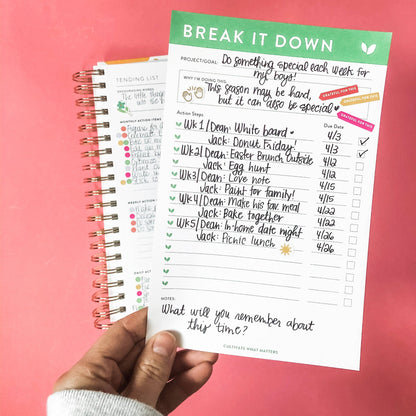 BREAK IT DOWN
PROJECT/GOAL: Do something special each week for
my boys!
WHY I'M DOING THIS:
This season may be hard,
but it can also be special
GRATEFUL FOR THIS.
GRATEFUL FOR THIS.
GRATEFUL FOR THIS.
Action Steps Due Date
Wk 1/Dean: White board 4/3
Jack: Donut Friday! 4/3
Wk2/Dean: Easter Brunch outside 4/12
Jack: Egg hunt 4/12
Wk3/Dean: Love note 4/15
Jack: Paint for family! 4/15
Wk4/Dean: Make his fav meal 4/22
Jack: Bake together 4/22
Wk5/Dean: In-home date night 4/26
Jack: Picnic lunch 4/26
NOTES:
What will you remember about
this time?
CULTIVATE WHAT MATTERS
TENDING LIST
The little things
MONTHLY ACTION ITEMS
WEEKLY ACTION
DAILY ACT